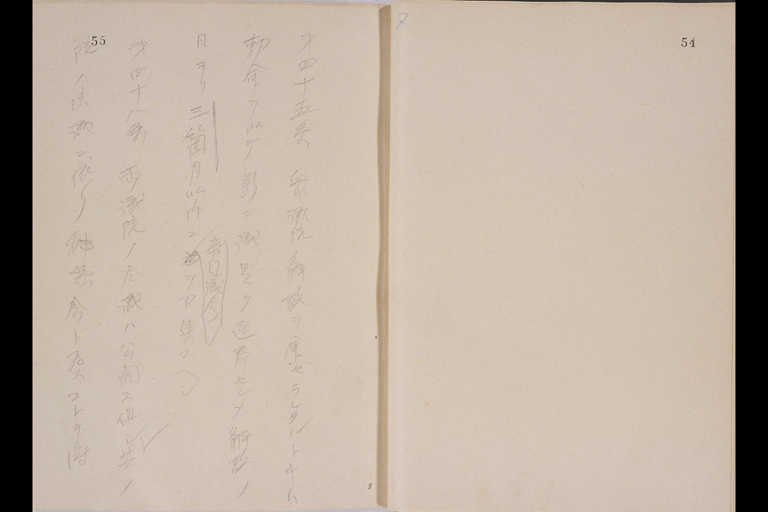 54
55
第四十五条 衆議院ノ解散ヲ命セラレタルトキハ
勅令ヲ以テ新ニ議員ヲ選挙セシメ解散ノ
日ヨリ三箇月以内ニ之ヲ召集スヘシ
第四十八条 両議院ノ会議ハ公開ス但シ其ノ
院ノ決議ニ依リ秘密会ト為スコトヲ得